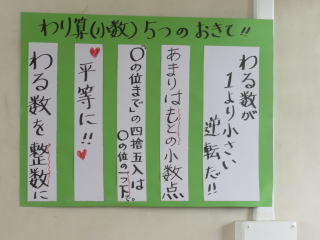 わり算(小数) 5つのおきて!!
わる数が
1より小さい
逆転だ!!
あまりはもとの小数点
"〇の位まで"の四捨五入は
〇の位の一つ下で。
平等に!!
わる数を整数に